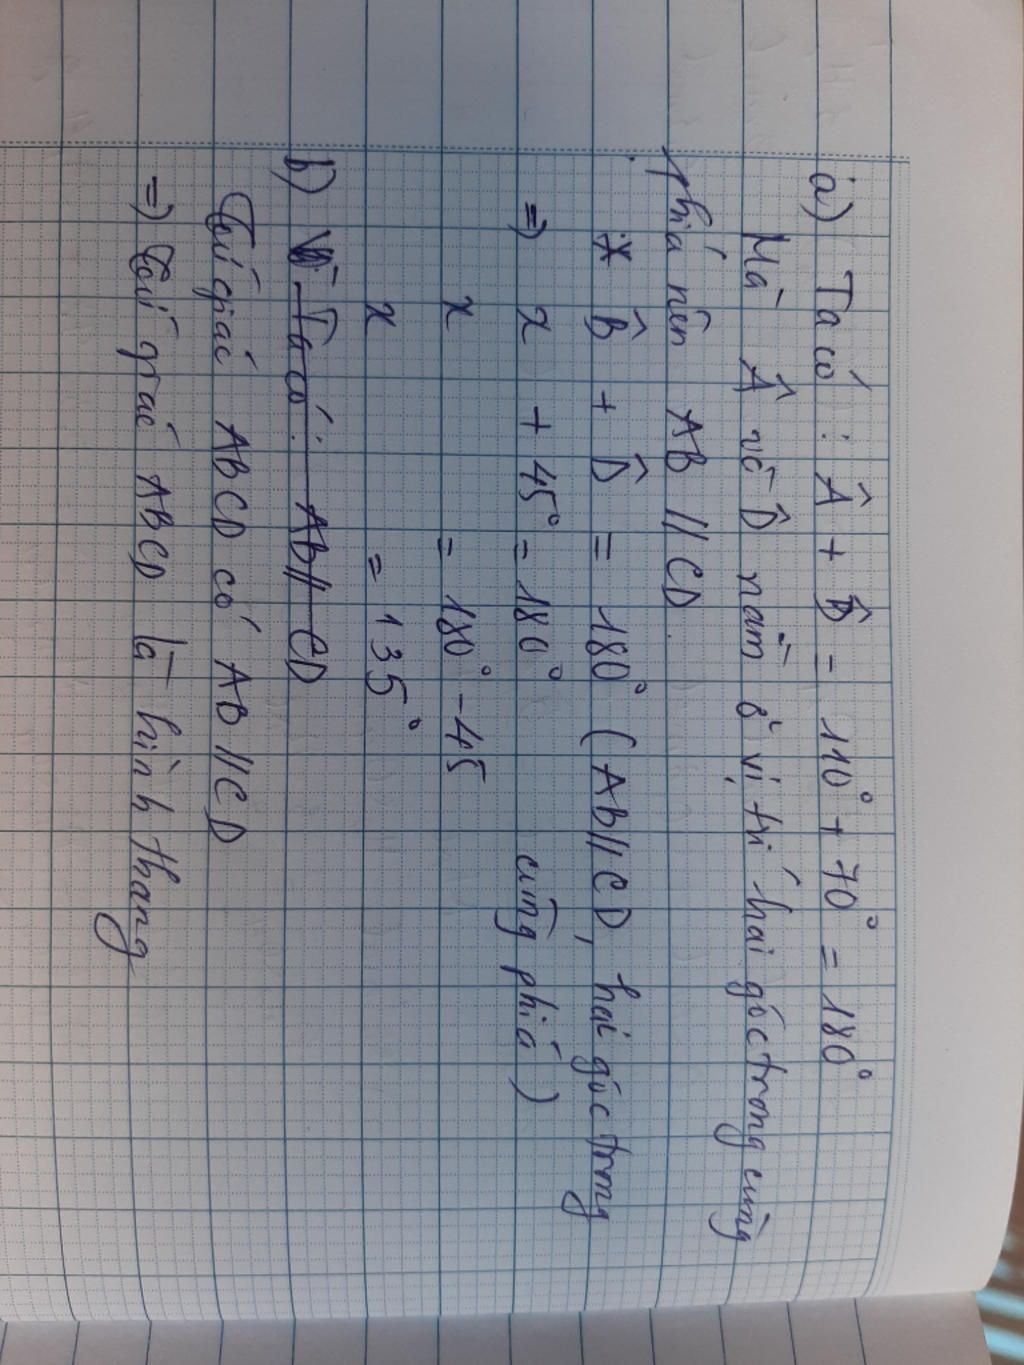 a) Ta có : Â + D̂ = 110° + 70° = 180°
Mà Â và D̂ nằm ở vị trí hai góc trong cùng
phía nên AB // CD.
* B̂ + D̂ = 180° ( AB // CD, hai góc trong
cùng phía )
=> x + 45° = 180°
x = 180° - 45
x = 135°
b) Ta có : AB // CD
Tứ giác ABCD có AB // CD
=> Tứ giác ABCD là hình thang